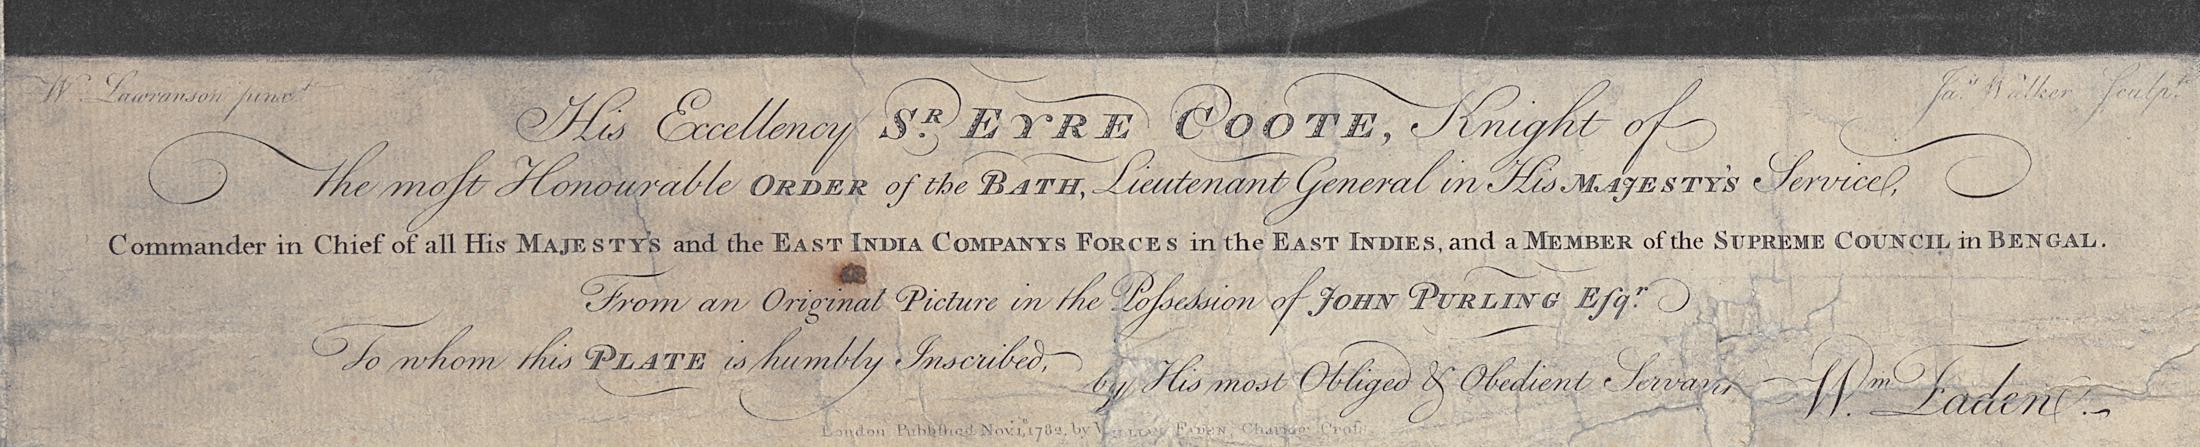 W. Lawranson pinx.t
Ja.s Walker Sculp.t
His Excellency S.R EYRE COOTE, Knight of
the moſt Honourable ORDER of the BATH, Lieutenant General in His MAJESTY'S Service,
Commander in Chief of all His MAJESTY'S and the EAST INDIA COMPANYS FORCES in the EAST INDIES, and a MEMBER of the SUPREME COUNCIL in BENGAL.
From an Original Picture in the Poſseſsion of JOHN PURLING Eſq.r
To whom this PLATE is humbly Inscribed,
by His most Obliged & Obedient Servant Wm. Faden.
London Publiſhed Nov. 1, 1782, by WILLIAM FADEN, Charing Croſs.